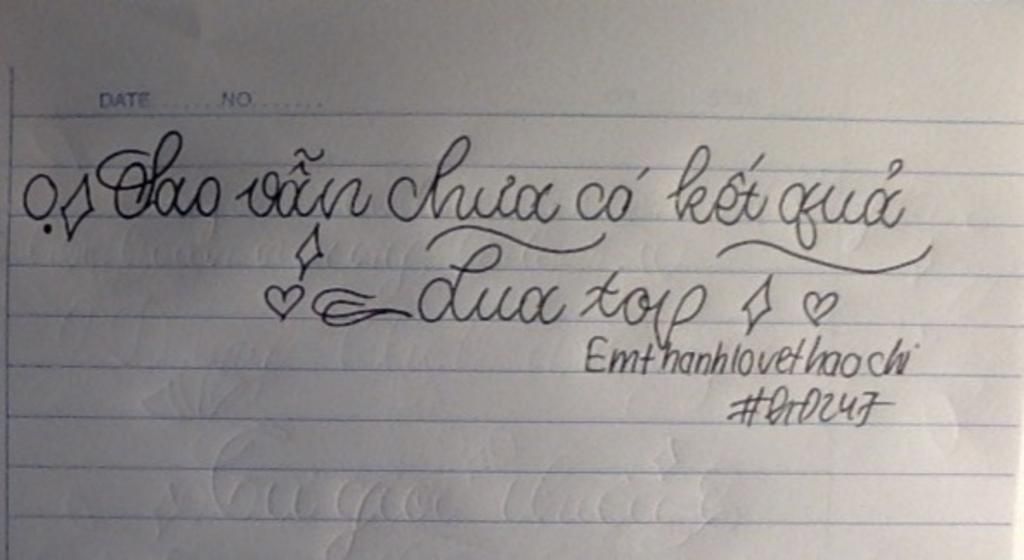 DATE ...... NO .......
Sao vẫn chưa có kết quả
đua top
Emthanhlovethaochi